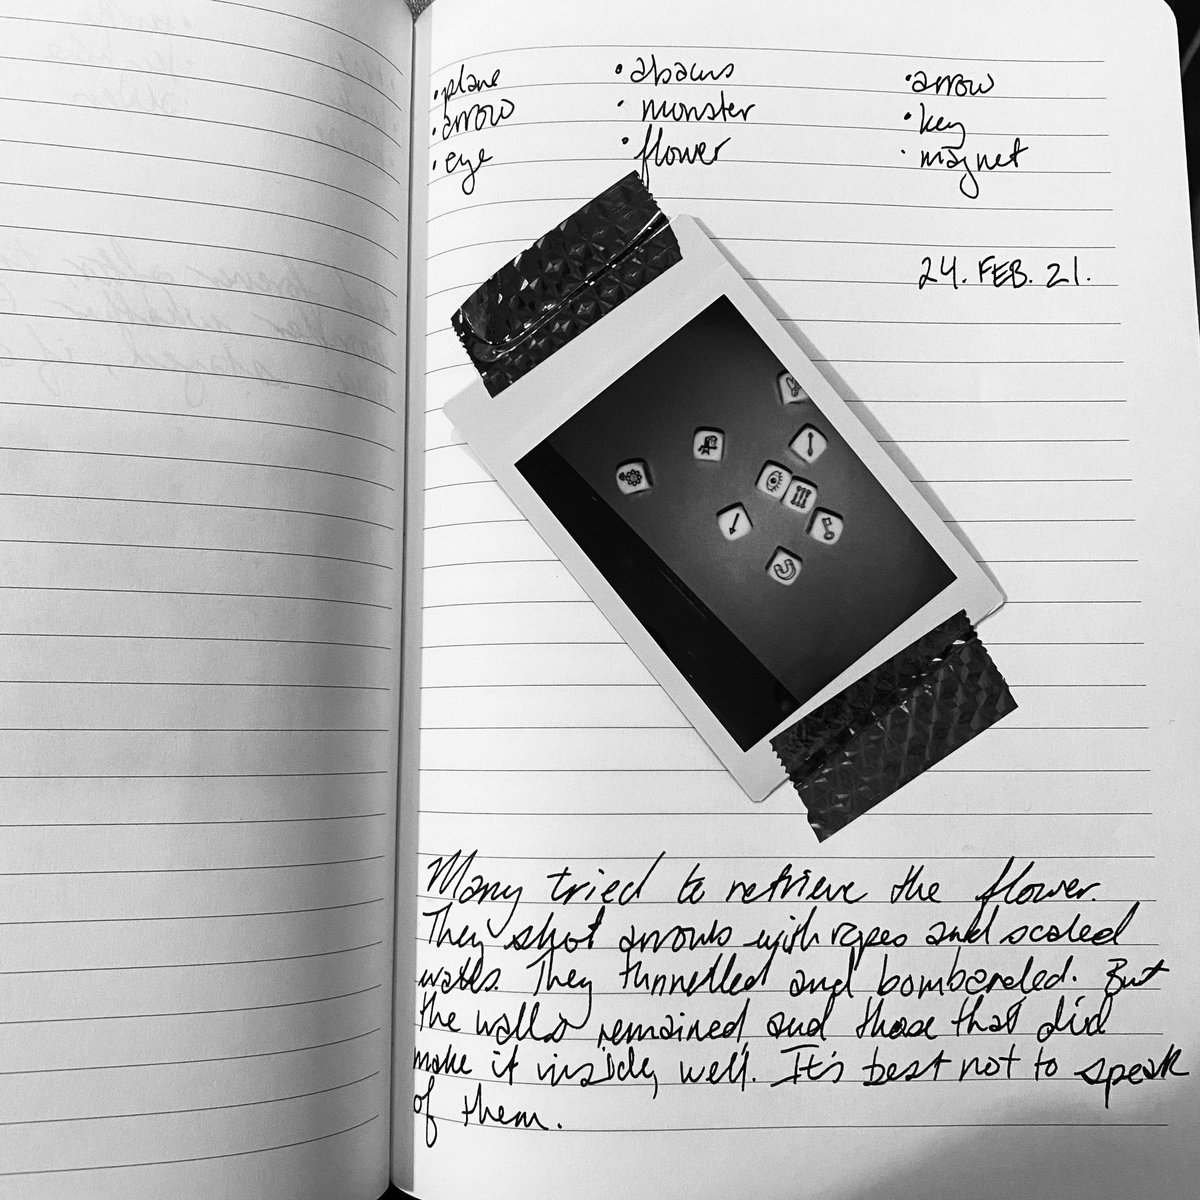 • plane
• arrow
• eye
• abacus
• monster
• flower
• arrow
• key
• magnet
24. FEB. 21.
Many tried to retrieve the flower.
They shot arrows with ropes and scaled
walls. They tunnelled and bombarded. But
the walls remained, and those that did
make it inside, well. It's best not to speak
of them.